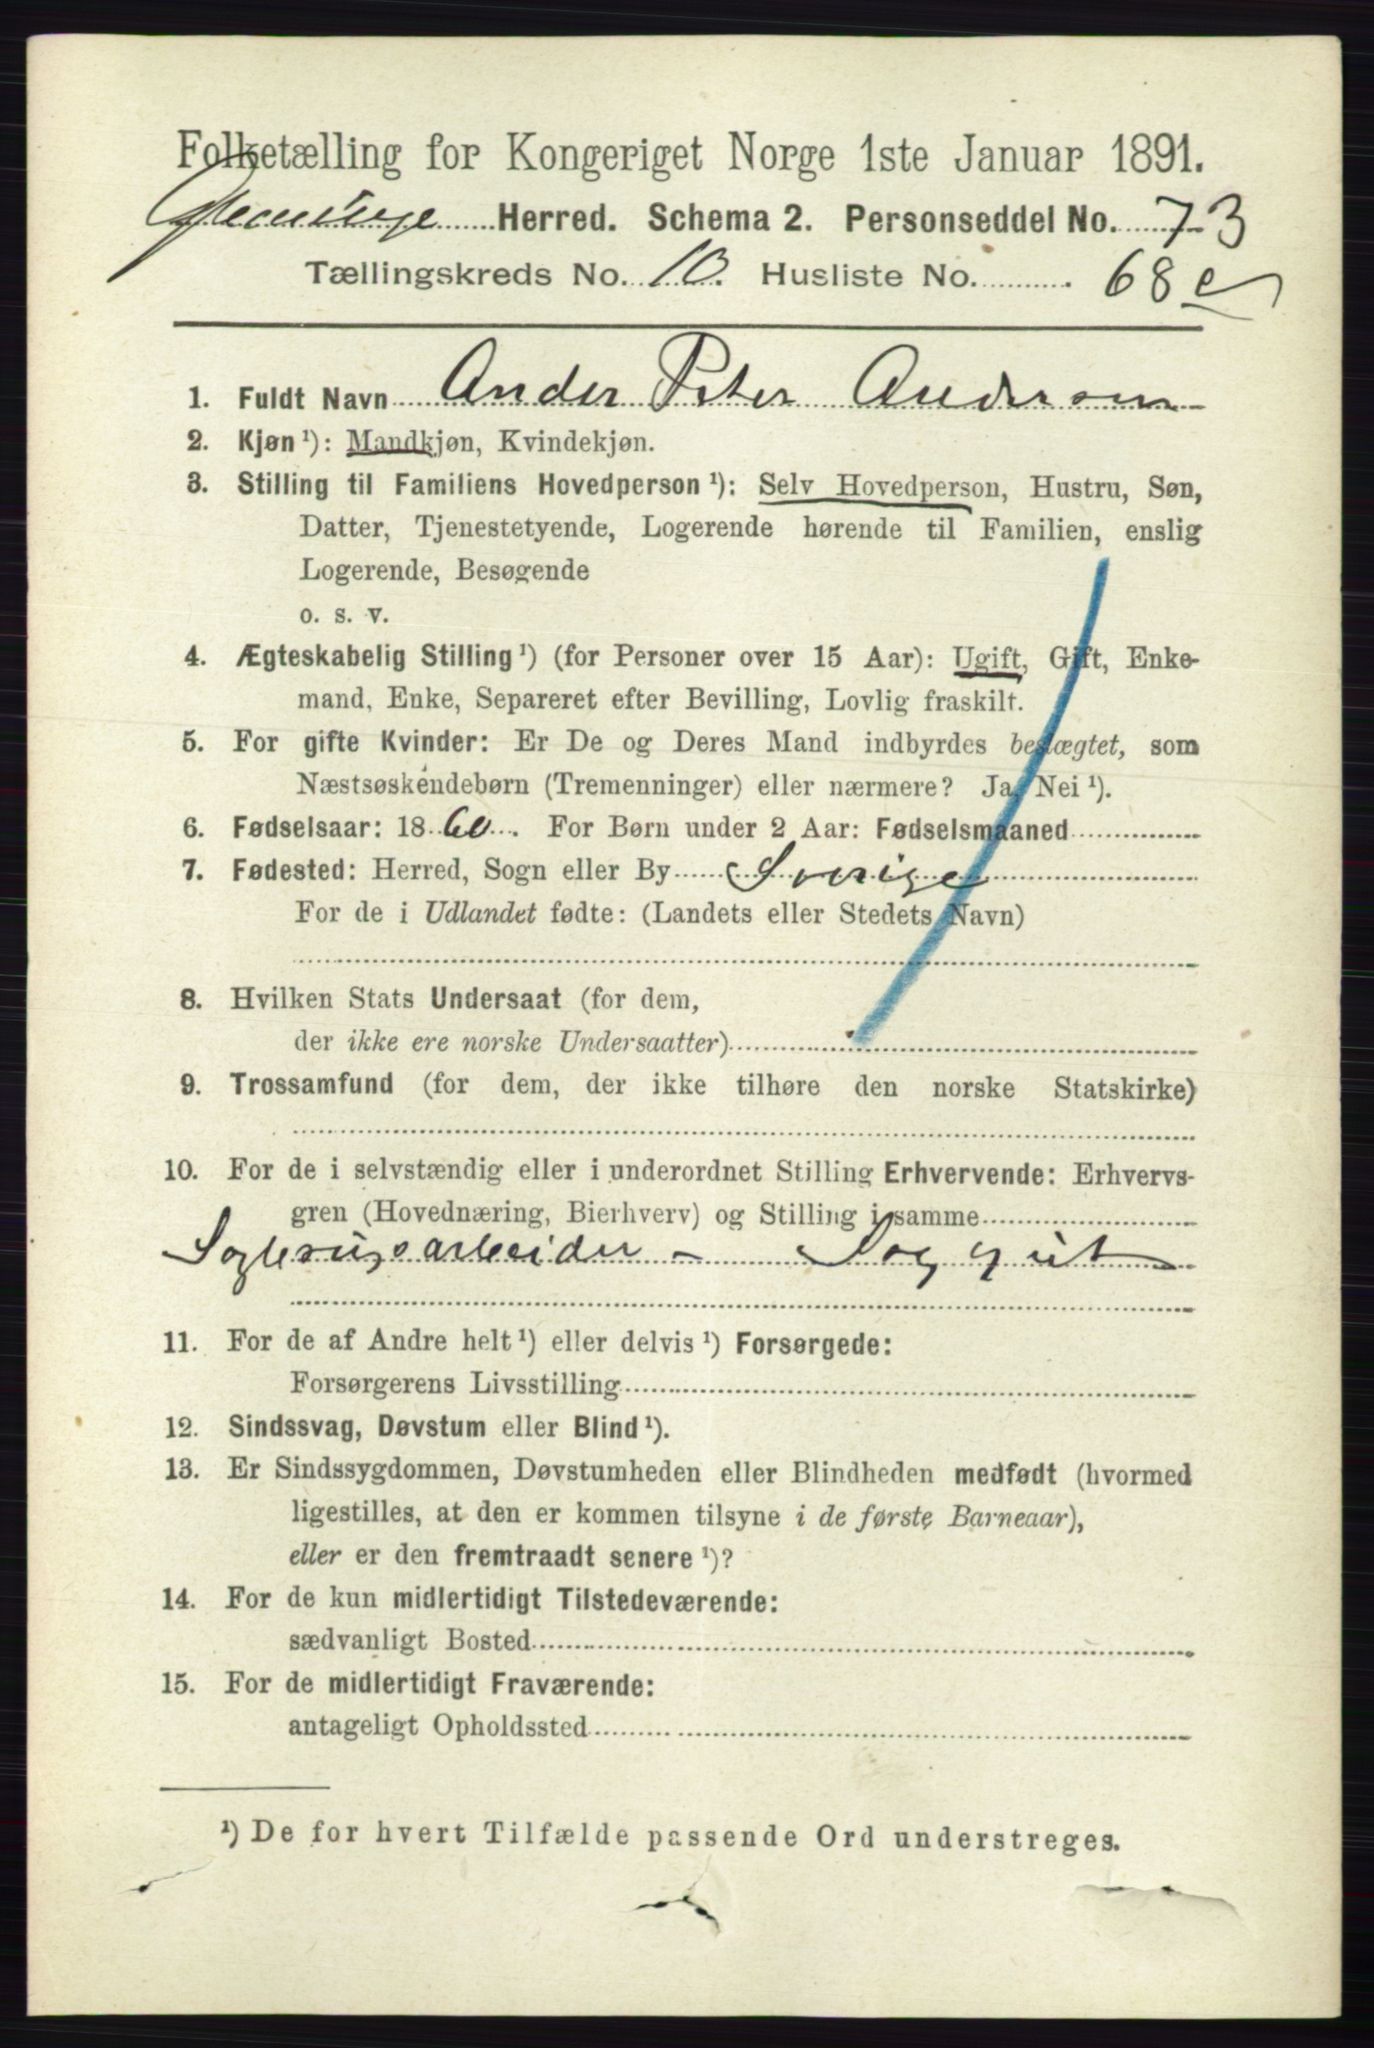 Folketælling for Kongeriget Norge 1ste Januar 1891.
Glemminge Herred. Schema 2. Personseddel No. 73
Tællingskreds No. 10. Husliste No. 68 e
1. Fuldt Navn Ander Peter Anderson
2. Kjøn ¹): Mandkjøn, Kvindekjøn.
3. Stilling til Familiens Hovedperson ¹): Selv Hovedperson, Hustru, Søn,
Datter, Tjenestetyende, Logerende hørende til Familien, enslig
Logerende, Besøgende
o. s. v.
4. Ægteskabelig Stilling ¹) (for Personer over 15 Aar): Ugift, Gift, Enke-
mand, Enke, Separeret efter Bevilling, Lovlig fraskilt.
5. For gifte Kvinder: Er De og Deres Mand indbyrdes beslægtet, som
Næstsøskendebørn (Tremenninger) eller nærmere? Ja, Nei ¹).
6. Fødselsaar: 1860. For Børn under 2 Aar: Fødselsmaaned
7. Fødested: Herred, Sogn eller By Sverige
For de i Udlandet fødte: (Landets eller Stedets Navn)
8. Hvilken Stats Undersaat (for dem,
der ikke ere norske Undersaatter)
9. Trossamfund (for dem, der ikke tilhøre den norske Statskirke)
10. For de i selvstændig eller i underordnet Stilling Erhvervende: Erhvervs-
gren (Hovednæring, Bierhverv) og Stilling i samme
Sagbrugsarbeider -
11. For de af Andre helt ¹) eller delvis ¹) Forsørgede:
Forsørgerens Livsstilling
12. Sindssvag, Døvstum eller Blind ¹).
13. Er Sindssygdommen, Døvstumheden eller Blindheden medfødt (hvormed
ligestilles, at den er kommen tilsyne i de første Barneaar),
eller er den fremtraadt senere ¹)?
14. For de kun midlertidigt Tilstedeværende:
sædvanligt Bosted
15. For de midlertidigt Fraværende:
antageligt Opholdssted
¹) De for hvert Tilfælde passende Ord understreges.